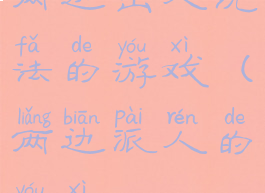 fǎ de yóu xì
法的游戏（
liǎng biān pài rén de
两边派人的
yóu xì